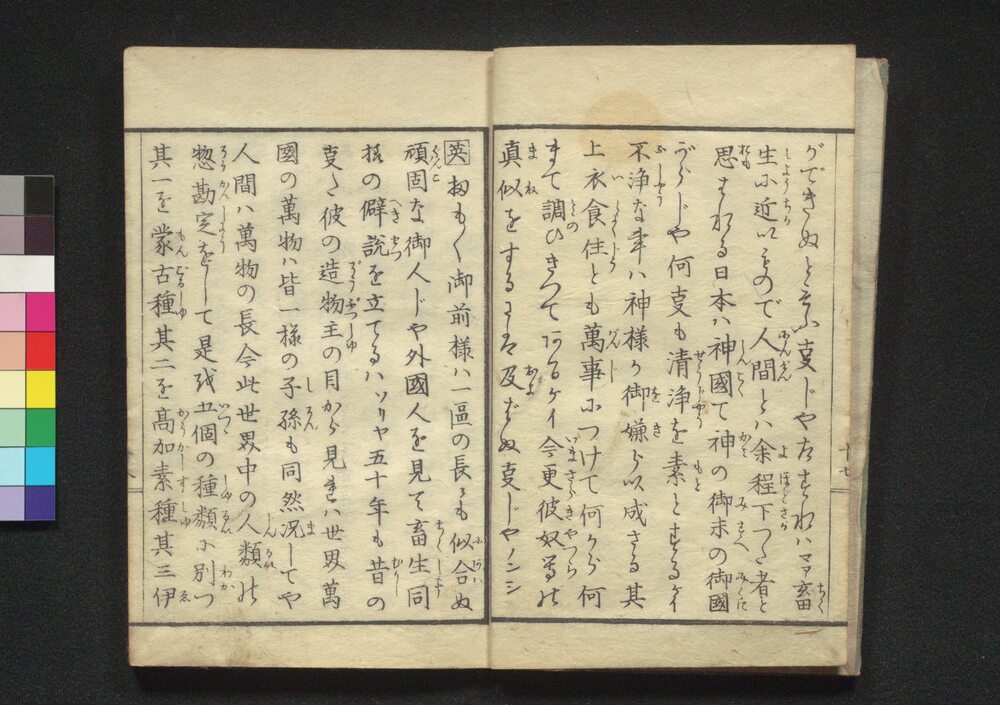 ができぬと云ふ支じや左すればマア畜
生に近いもので人間とは余程下つた者と
思はれる日本は神國で神の御末の御國
がらじや何支も清浄を素とするケイ
不浄な事ハ神様が御嫌ひ成さる其
上衣食住とも萬事につけて何から何
まで調ひきつて在るケイ今更彼奴等の
真似をするには及ばぬ支じやノンシ
英 扨もく御前様ハ一區の長にも似合ぬ
頑固な御人じや外國人を見て畜生同
様の僻説を立てるハソリヤ五十年も昔の
支た彼の造物主の目から見れは世界萬
國の萬物ハ皆一様の子孫も同然况してや
人間ハ萬物の長今此世界中の人類の
惣勘定をして是を五個の種類に別つ
其一を蒙古種其二を高加索種其三伊
十七